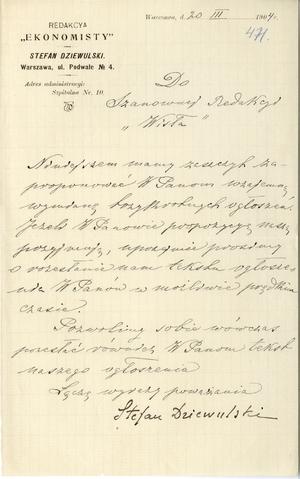 REDAKCYA
„EKONOMISTY”
STEFAN DZIEWULSKI.
Warszawa, ul. Podwale № 4.
Adres administracyi:
Szpitalna Nr. 10.
Warszawa, d. 20 III 1904 r.
471.
Do
Szanownej Redakcyi
„Wisła”
Niniejszem mamy zaszczyt za-
proponować WPanom wzajemną
wymianę bezpłatnych ogłoszeń.
Jeżeli WPanowie propozycyę naszą
przyjmują, uprzejmie prosimy
o nadesłanie nam tekstu ogłosze-
nia WPanów w możliwie prędkim
czasie.
Pozwolimy sobie wówczas
przesłać również WPanom tekst
naszego ogłoszenia
Łączę wyrazy poważania
Stefan Dziewulski